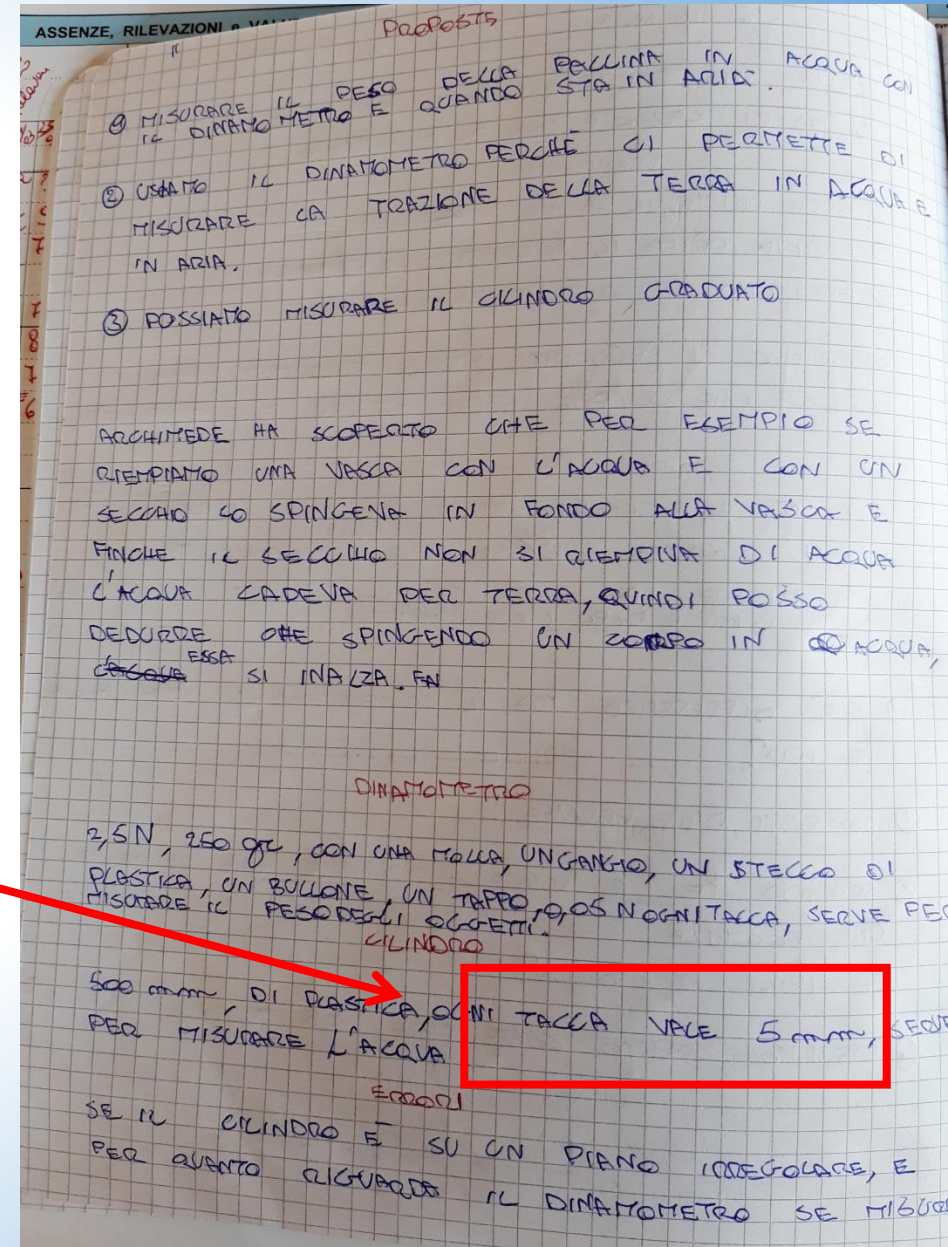 ASSENZE, RILEVAZIONI e
PROPOSTE
① MISURARE IL PESO DELLA PALLINA IN ACQUA CON
IL DINAMOMETRO E QUANDO STA IN ARIA.
② USIAMO IL DINAMOMETRO PERCHÉ CI PERMETTE DI
MISURARE LA TRAZIONE DELLA TERRA IN ACQUA E
IN ARIA.
③ POSSIAMO MISURARE IL CILINDRO GRADUATO
ARCHIMEDE HA SCOPERTO CHE PER ESEMPIO SE
RIEMPIAMO UNA VASCA CON L'ACQUA E CON UN
SECCHIO LO SPINGEVA IN FONDO ALLA VASCA E
FINCHE IL SECCHIO NON SI RIEMPIVA DI ACQUA
L'ACQUA CADEVA PER TERRA, QUINDI POSSO
DEDURRE CHE SPINGENDO UN CORPO IN ACQUA,
ESSA SI INALZA.
DINAMOMETRO
2,5 N, 250 gr, CON UNA MOLLA, UN GANGIO, UN STECCO DI
PLASTICA, UN BULLONE, UN TAPPO, 0,05 N OGNI TACCA, SERVE PER
MISURARE IL PESO DEGLI OGGETTI.
CILINDRO
500 mm, DI PLASTICA, OGNI TACCA VALE 5 mm, SERVE
PER MISURARE L'ACQUA
ERRORI
SE IL CILINDRO È SU UN PIANO IRREGOLARE, E
PER QUANTO RIGUARDA IL DINAMOMETRO SE MISUR